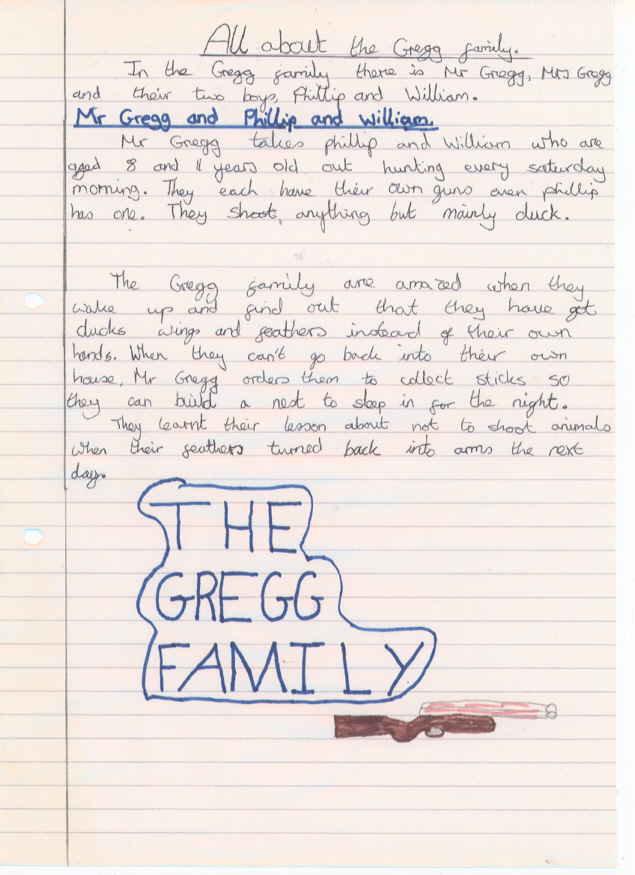 All about the Gregg family.
In the Gregg family there is Mr Gregg, Mrs Gregg
and their two boys, Phillip and William.
Mr Gregg and Phillip and William.
Mr Gregg takes phillip and William who are
aged 8 and 11 years old out hunting every saturday
morning. They each have their own guns even phillip
has one. They shoot, anything but mainly duck.
The Gregg family are amazed when they
wake up and find out that they have got
ducks wings and feathers instead of their own
hands. When they can't go back into their own
house, Mr Gregg orders them to collect sticks so
they can build a nest to sleep in for the night.
They learnt their lesson about not to shoot animals
when their feathers turned back into arms the next
day.
THE
GREGG
FAMILY